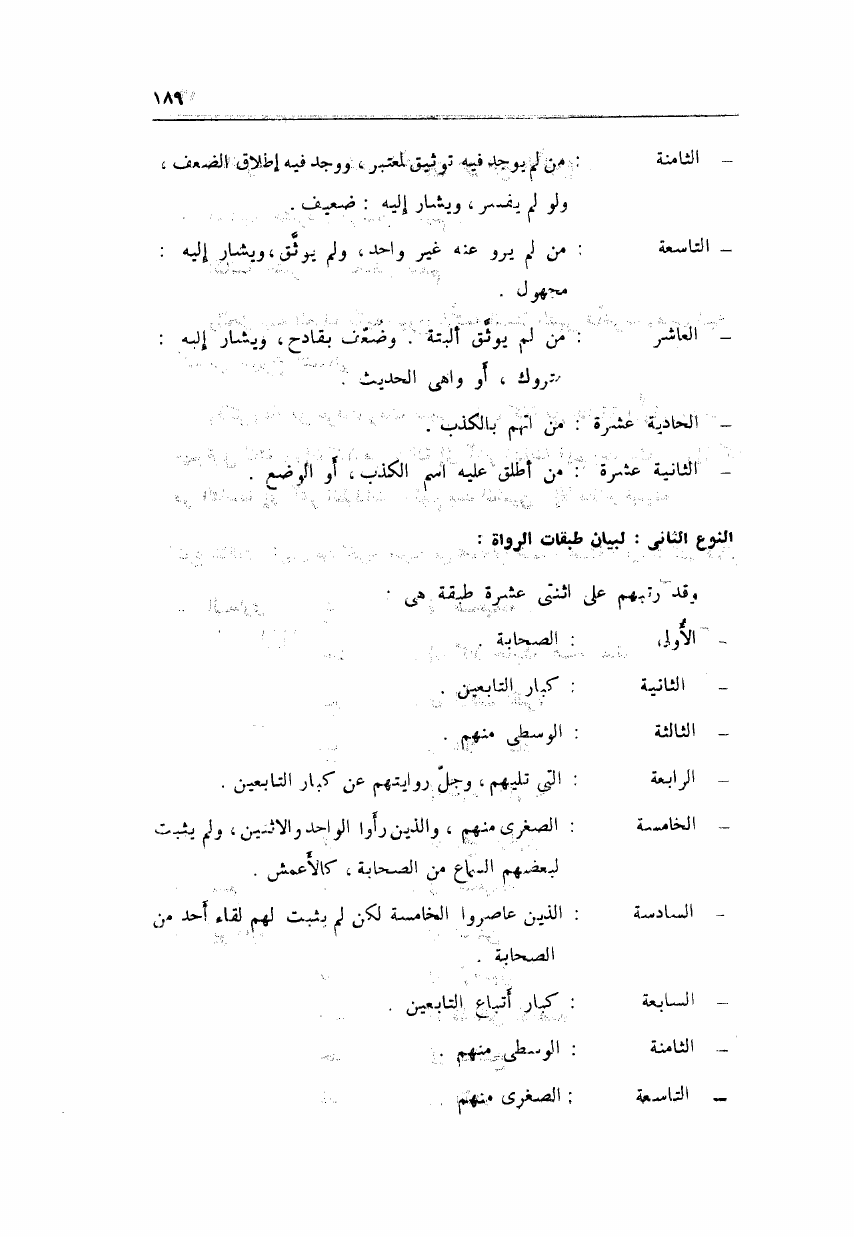 ١٨٩
– الثامنة : من لم يوجد فيه توثيق لمعتبر ، ووجد فيه إطلاق الضعف ،
ولو لم يفسر ، ويشار إليه : ضعيف .
– التاسعة : من لم يرو عنه غير واحد ، ولم يوثَّق ، ويشار إليه :
مجهول .
– العاشر : من لم يوثَّق ألبتة . وضعّف بقادح ، ويشار إليه :
متروك ، أو واهى الحديث .
– الحادية عشرة : من اتهم بالكذب .
– الثانية عشرة : من أطلق عليه اسم الكذب ، أو الوضع .
النوع الثانى : لبيان طبقات الرواة :
وقد رتبهم على اثنتى عشرة طبقة هى
– الأُولى : الصحابة .
– الثانية : كبار التابعين .
– الثالثة : الوسطى منهم .
– الرابعة : التى تليهم ، وجلّ روايتهم عن كبار التابعين .
– الخامسة : الصغرى منهم ، والذين رأوا الواحد والاثنين ، ولم يثبت
لبعضهم السماع من الصحابة ، كالأعمش .
– السادسة : الذين عاصروا الخامسة لكن لم يثبت لهم لقاء أحد من
الصحابة .
– السابعة : كبار أتباع التابعين .
– الثامنة : الوسطى منهم .
– التاسعة : الصغرى منهم .